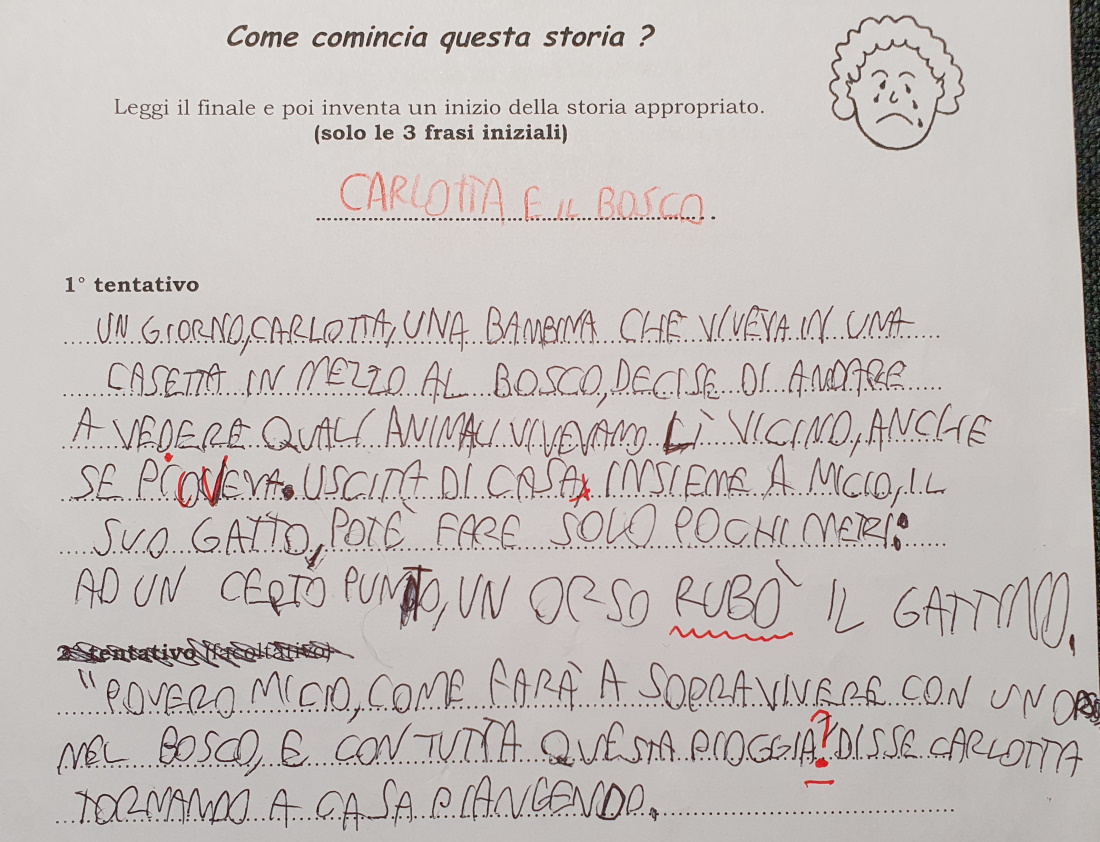 Come comincia questa storia ?
Leggi il finale e poi inventa un inizio della storia appropriato.
(solo le 3 frasi iniziali)
CARLOTTA E IL BOSCO
1° tentativo
UN GIORNO, CARLOTTA, UNA BAMBINA CHE VIVEVA IN UNA
CASETTA IN MEZZO AL BOSCO, DECISE DI ANDARE
A VEDERE QUALI ANIMALI VIVEVANO LÌ VICINO, ANCHE
SE PIOVEVA. USCITA DI CASA INSIEME A MICIO, IL
SUO GATTO, POTÈ FARE SOLO POCHI METRI:
AD UN CERTO PUNTO, UN ORSO RUBÒ IL GATTINO.
2° tentativo (facoltativo)
"POVERO MICIO, COME FARÀ A SOPRAVIVERE CON UN ORSO
NEL BOSCO, E CON TUTTA QUESTA PIOGGIA? DISSE CARLOTTA
TORNANDO A CASA PIANGENDO.